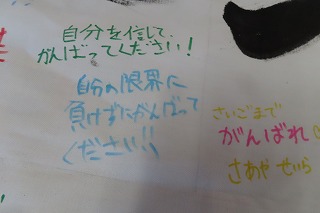 自分を信して、
がんばってください!
自分の限界に
負けずにがんばって
ください!!
さいごまで
がんばれ
さあや せいら